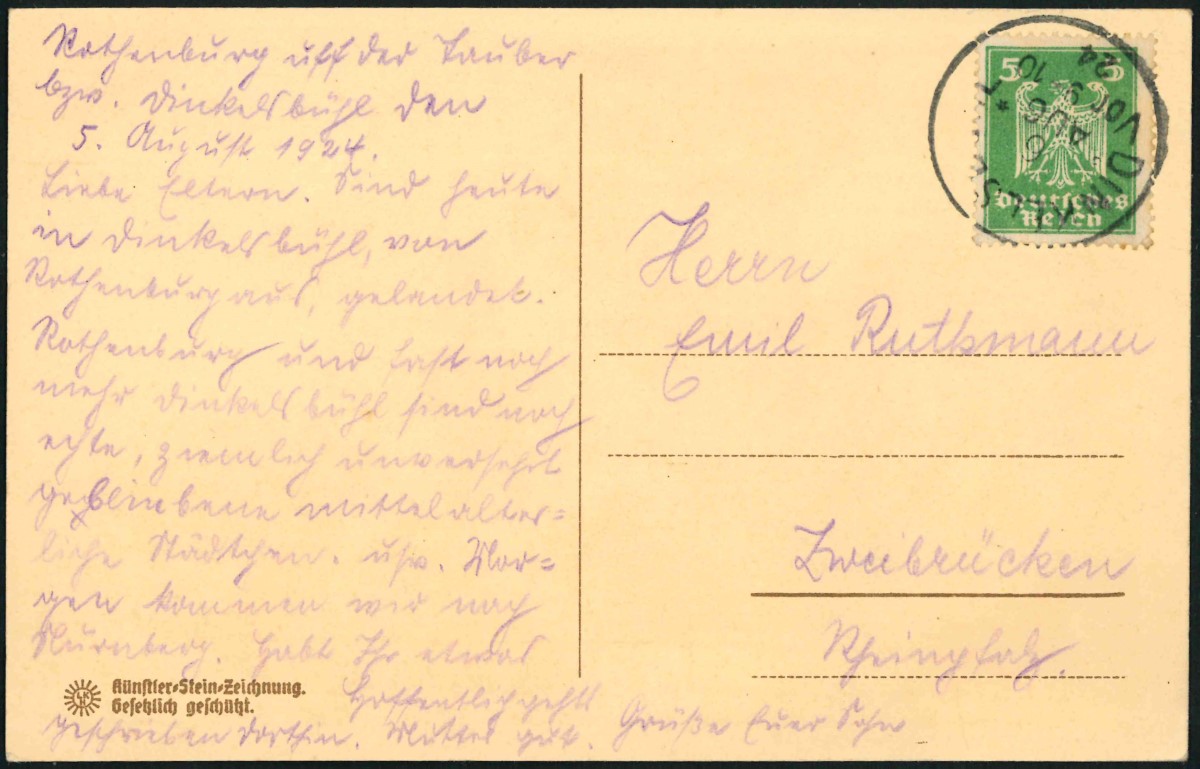 Rothenburg uff der Tauber
bzw. Dinkelsbühl den
5. August 1924.
Liebe Eltern. Sind heute
in Dinkelsbühl, von
Rothenburg aus, gelandet.
Rothenburg und fast noch
mehr Dinkelsbühl sind noch
echte, ziemlich unversehrt
gebliebene mittelalter=
liche Städtchen. usw. Mor=
gen kommen wir nach
Nürnberg. Habt Ihr etwas
geschrieben dorthin.
Hoffentlich gehts
Mutter gut. Grüße Euer Sohn
Künstler-Stein-Zeichnung.
Gesetzlich geschützt.
5 5
Deutsches
Reich
DINKELS
4 AUG
VOR 9-10
24
Herrn
Emil Ruthsmann
Zweibrücken
Rheinpfalz.